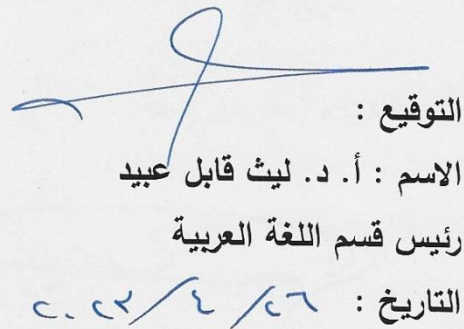 التوقيع :
الاسم : أ. د. ليث قابل عبيد
رئيس قسم اللغة العربية
التاريخ : ٢٦ / ٤ / ٢٠٢٣